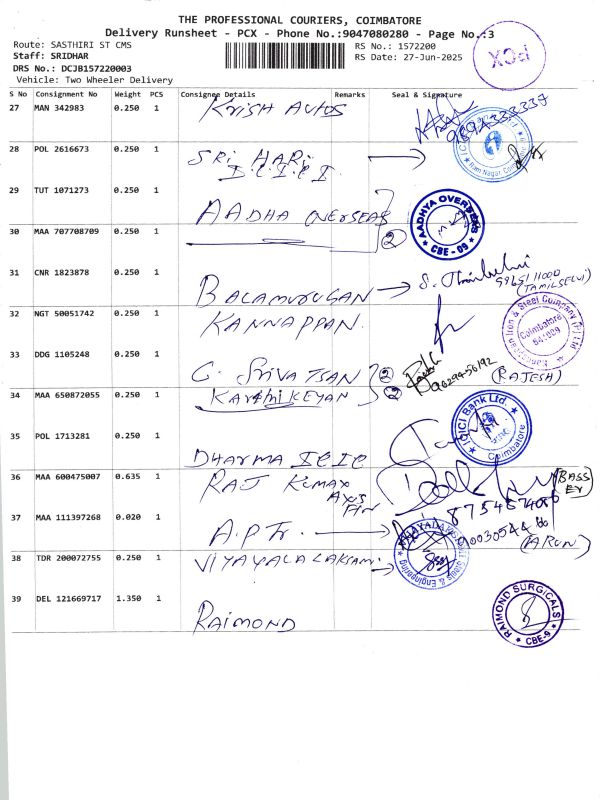 THE PROFESSIONAL COURIERS, COIMBATORE
Delivery Runsheet - PCX - Phone No.:9047080280 - Page No.:3
Route: SASTHIRI ST CMS
RS No.: 1572200
Staff: SRIDHAR
RS Date: 27-Jun-2025
DRS No.: DCJB157220003
Vehicle: Two Wheeler Delivery
PCX
S No Consignment No Weight PCS Consignee Details Remarks Seal & Signature
27 MAN 342983 0.250 1 Krish Autos
28 POL 2616673 0.250 1 SRI HARI
I.C.I.C.I.
29 TUT 1071273 0.250 1 AADHA OVERSEAS
AADHYA OVERSEAS
CBE - 09
30 MAA 707708709 0.250 1 2
31 CNR 1823878 0.250 1 BALAMURUGAN
(TAMILSELVI)
32 NGT 50051742 0.250 1 KANNAPPAN
Iron & Steel Company (P) Ltd
Coimbatore
641009
33 DDG 1105248 0.250 1 G. SRIVATSAN 2
(RAJESH)
34 MAA 650872055 0.250 1 KARTHIKEYAN 2
ICICI Bank Ltd.
Coimbatore
35 POL 1713281 0.250 1 DHARMA ICIC
36 MAA 600475007 0.635 1 RAJ KUMAR
AXIS
FIN
37 MAA 111397268 0.020 1 A.P Tr.
(ARUN)
38 TDR 200072755 0.250 1 VIYAYALALAKSAMI
39 DEL 121669717 1.350 1 RAIMOND
RAIMOND SURGICALS
CBE-9